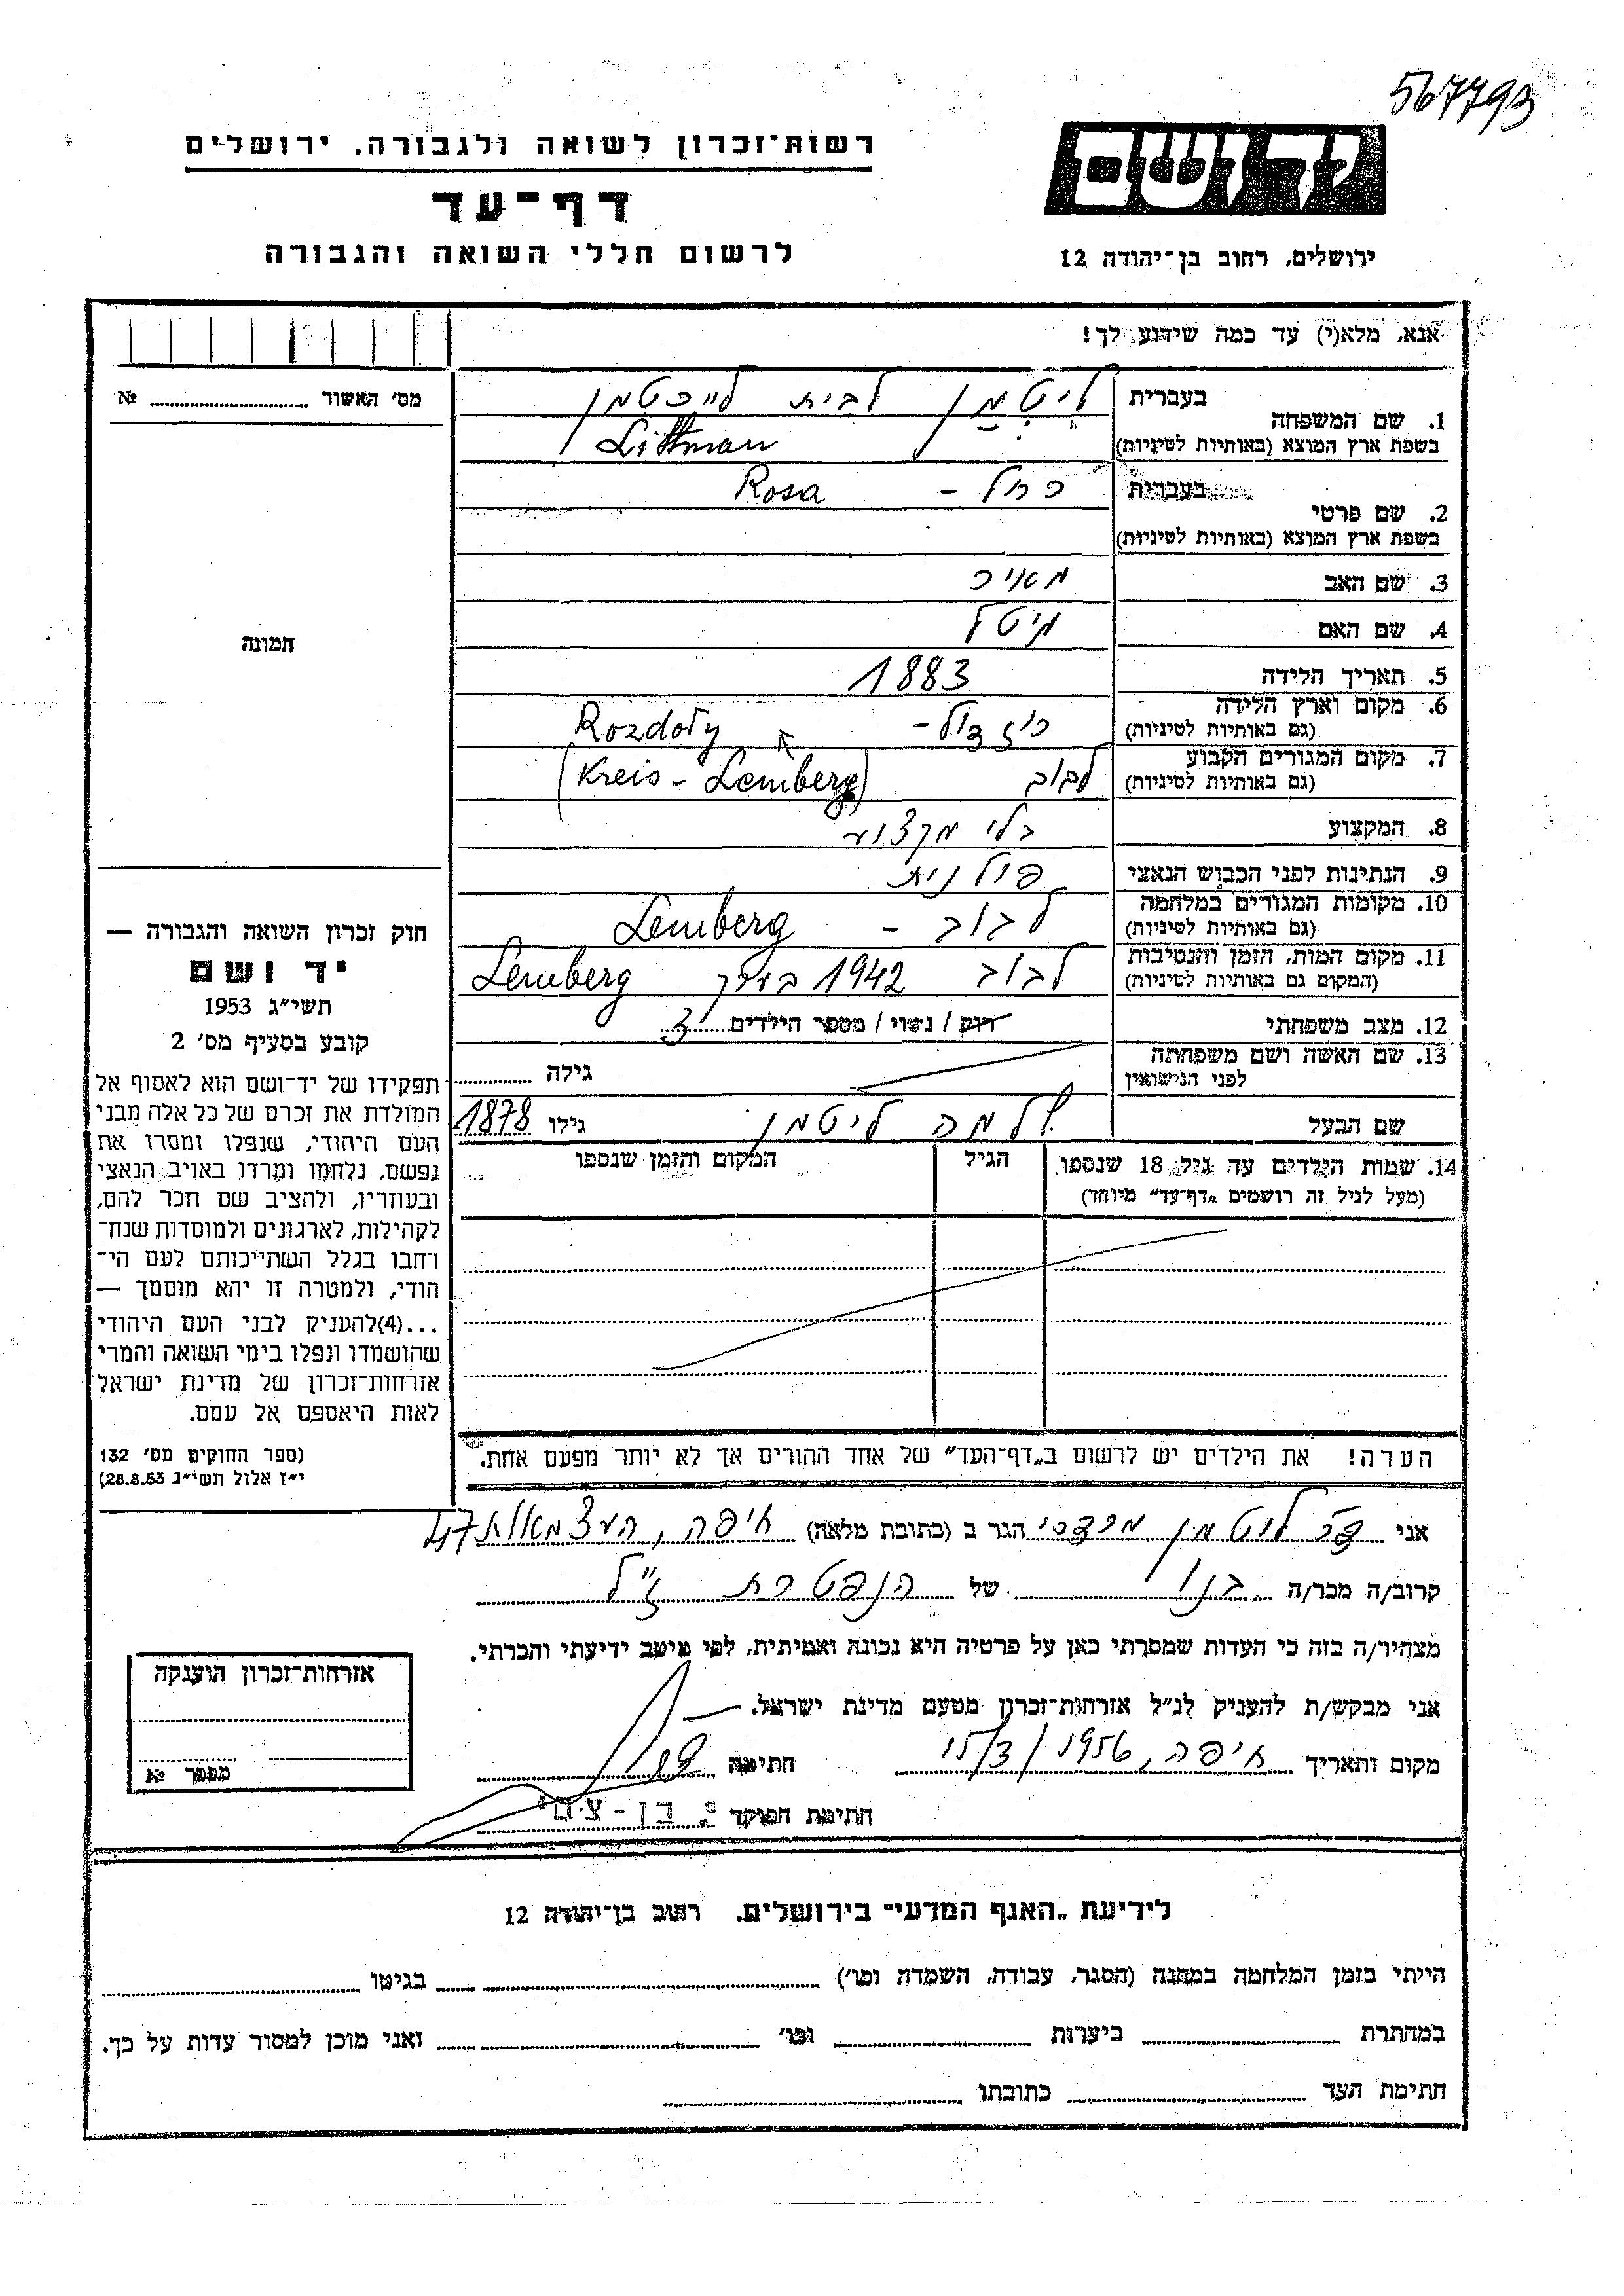 567793
יד ושם
רשות־זכרון לשואה ולגבורה, ירושלים
דף־עד
לרשום חללי השואה והגבורה
ירושלים, רחוב בן־יהודה 12
אנא, מלא(י) עד כמה שידוע לך!
מס' האשור № 
תמונה
1. שם המשפחה בעברית ליטמן לבית
בשפת ארץ המוצא (באותיות לטיניות) Littman
2. שם פרטי בעברית רחל - Rosa
בשפת ארץ המוצא (באותיות לטיניות)
3. שם האב מאיר
4. שם האם מיטל
5. תאריך הלידה 1883
6. מקום וארץ הלידה רוזדול - Rozdoły
(גם באותיות לטיניות)
7. מקום המגורים הקבוע לבוב (Kreis - Lemberg)
(גם באותיות לטיניות)
8. המקצוע בלי מקצוע
9. הנתינות לפני הכבוש הנאצי פולנית
10. מקומות המגורים במלחמה לבוב - Lemberg
(גם באותיות לטיניות)
11. מקום המות, הזמן והנסיבות לבוב 1942 Lemberg
(המקום גם באותיות לטיניות)
12. מצב משפחתי רוק / נשוי / מספר הילדים 3
13. שם האשה ושם משפחתה
לפני הנישואין גילה
שם הבעל שלמה ליטמן גילו 1878
14. שמות הילדים עד גיל 18 שנספו הגיל המקום והזמן שנספו
(מעל לגיל זה רושמים „דף־עד" מיוחד)
הערה! את הילדים יש לרשום ב„דף־העד" של אחד ההורים אך לא יותר מפעם אחת.
חוק זכרון השואה והגבורה —
יד ושם
תשי"ג 1953
קובע בסעיף מס' 2
תפקידו של יד־ושם הוא לאסוף אל
המולדת את זכרם של כל אלה מבני
העם היהודי, שנפלו ומסרו את
נפשם, נלחמו ומרדו באויב הנאצי
ובעוזריו, ולהציב שם וזכר להם,
לקהילות, לארגונים ולמוסדות שנח־
רבו בגלל השתייכותם לעם הי־
הודי, ולמטרה זו יהא מוסמך —
...(4)להעניק לבני העם היהודי
שהושמדו ונפלו בימי השואה והמרי
אזרחות־זכרון של מדינת ישראל
לאות היאספם אל עמם.
(ספר החוקים מס' 132
י"ז אלול תשי"ג 28.8.53)
אני ליטמן מרדכי הגר ב (כתובת מלאה) חיפה, העצמאות
קרוב/ה מכר/ה בנו של הנפטרת ז"ל
מצהיר/ה בזה כי העדות שמסרתי כאן על פרטיה היא נכונה ואמיתית, לפי מיטב ידיעתי והכרתי.
אני מבקש/ת להעניק לנ"ל אזרחות־זכרון מטעם מדינת ישראל.
מקום ותאריך חיפה, 15/3/1956 חתימה
חתימת הפוקד
אזרחות־זכרון הוענקה
מספר №
לידיעת „האגף המדעי" בירושלים, רחוב בן־יהודה 12
הייתי בזמן המלחמה במחנה (הסגר, עבודה, השמדה וכו') בגיטו
במחתרת ביערות וכו' ואני מוכן למסור עדות על כך.
חתימת העד כתובתו